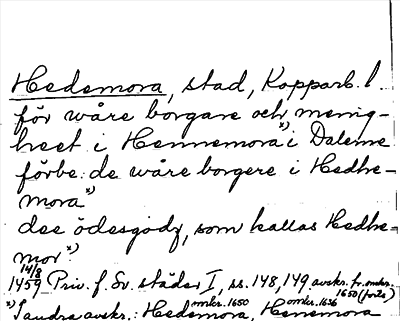 Hedemora, stad, Kopparb. l.
för wåre borgare och menig-
heet i Hennemora x) i Dalerne
förbe: de wåre borgere i Hedhe-
mora x)
dee ödesgodz, som kallas Hedhe-
mor x)?
14/8
1459 Priv. f. Sv. städer I, ss. 148, 149 avskr. fr. omkr.
1650 (forts)
x) I andra avskr.: Hedemora omkr. 1650, Henemora omkr. 1636